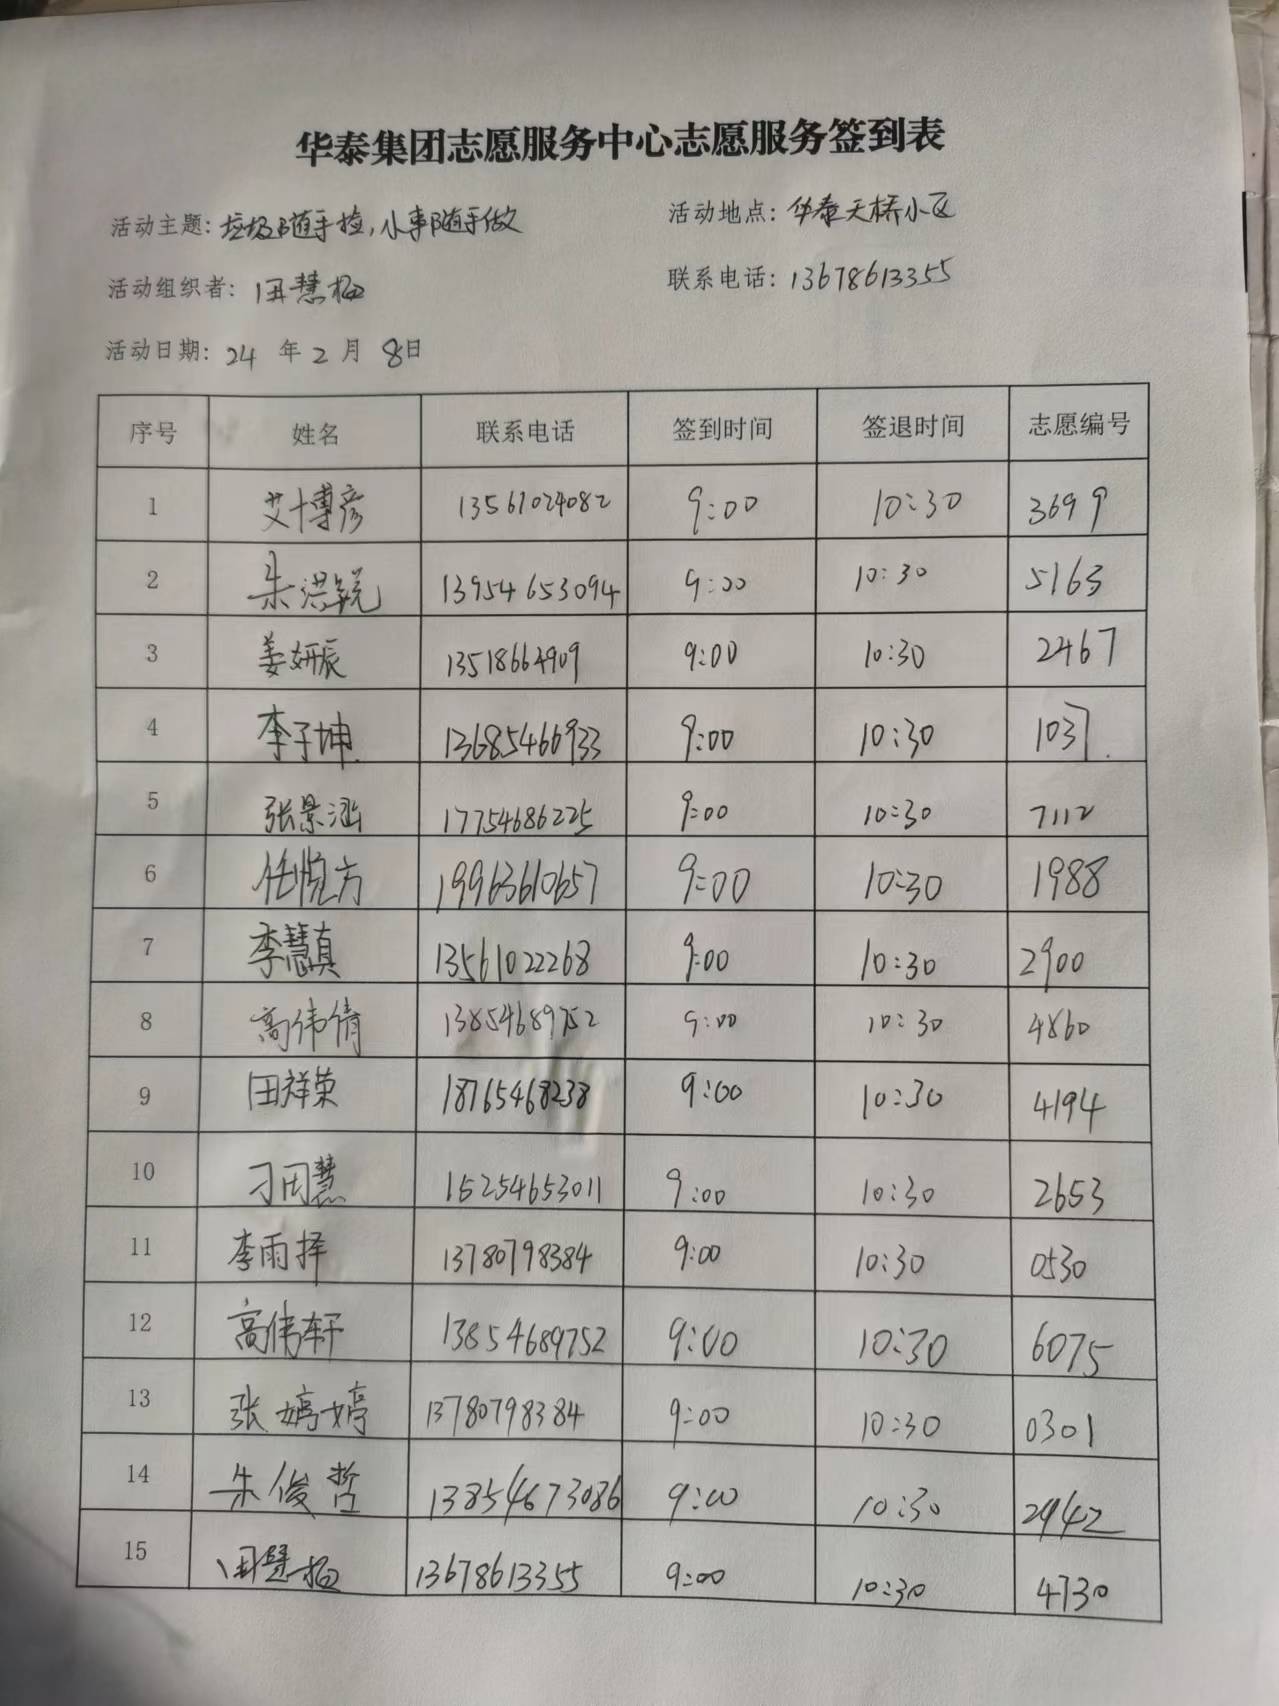 华泰集团志愿服务中心志愿服务签到表
活动主题：垃圾随手捡，小事随手做 活动地点：华泰天桥小区
活动组织者：田慧梅 联系电话：13678613355
活动日期：24 年 2 月 8日
序号 姓名 联系电话 签到时间 签退时间 志愿编号
1 艾博彦 13561024082 9:00 10:30 3699
2 朱洪锐 13954653094 9:00 10:30 5163
3 姜妍辰 13518664909 9:00 10:30 2467
4 李子坤 13685466933 9:00 10:30 1037
5 张景涵 17754686225 9:00 10:30 7112
6 任悦方 19963610657 9:00 10:30 1988
7 李慧真 13561022268 9:00 10:30 2900
8 高伟倩 13854689752 9:00 10:30 4860
9 田祥荣 18765468238 9:00 10:30 4194
10 刁田慧 15254653011 9:00 10:30 2653
11 李雨择 13780798384 9:00 10:30 0530
12 高伟轩 13854689752 9:00 10:30 6075
13 张婷婷 13780798384 9:00 10:30 0301
14 朱俊哲 13854673086 9:00 10:30 2942
15 田慧梅 13678613355 9:00 10:30 4730